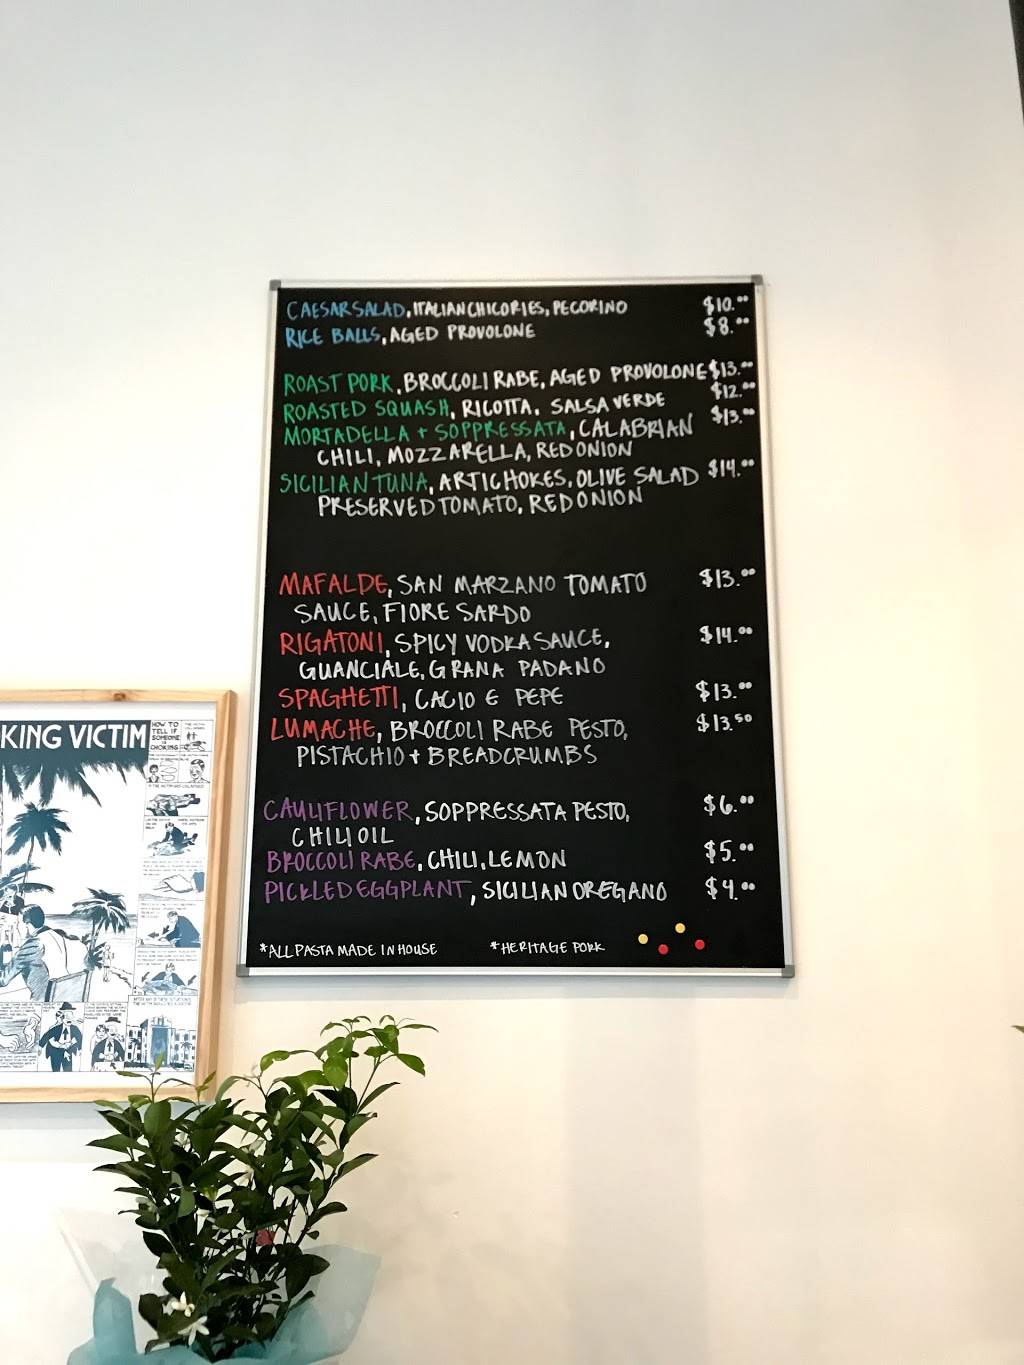 CAESAR SALAD, ITALIAN CHICORIES, PECORINO $10.00
RICE BALLS, AGED PROVOLONE $8.00
ROAST PORK, BROCCOLI RABE, AGED PROVOLONE $13.00
ROASTED SQUASH, RICOTTA, SALSA VERDE $12.00
MORTADELLA + SOPPRESSATA, CALABRIAN $13.00
CHILI, MOZZARELLA, RED ONION
SICILIAN TUNA, ARTICHOKES, OLIVE SALAD $14.00
PRESERVED TOMATO, RED ONION
MAFALDE, SAN MARZANO TOMATO $13.00
SAUCE, FIORE SARDO
RIGATONI, SPICY VODKA SAUCE, $14.00
GUANCIALE, GRANA PADANO
SPAGHETTI, CACIO E PEPE $13.00
LUMACHE, BROCCOLI RABE PESTO, $13.50
PISTACHIO + BREADCRUMBS
CAULIFLOWER, SOPPRESSATA PESTO, $6.00
CHILI OIL
BROCCOLI RABE, CHILI, LEMON $5.00
PICKLED EGGPLANT, SICILIAN OREGANO $4.00
*ALL PASTA MADE IN HOUSE *HERITAGE PORK
KING VICTIM
HOW TO
TELL IF
SOMEONE
IS
CHOKING